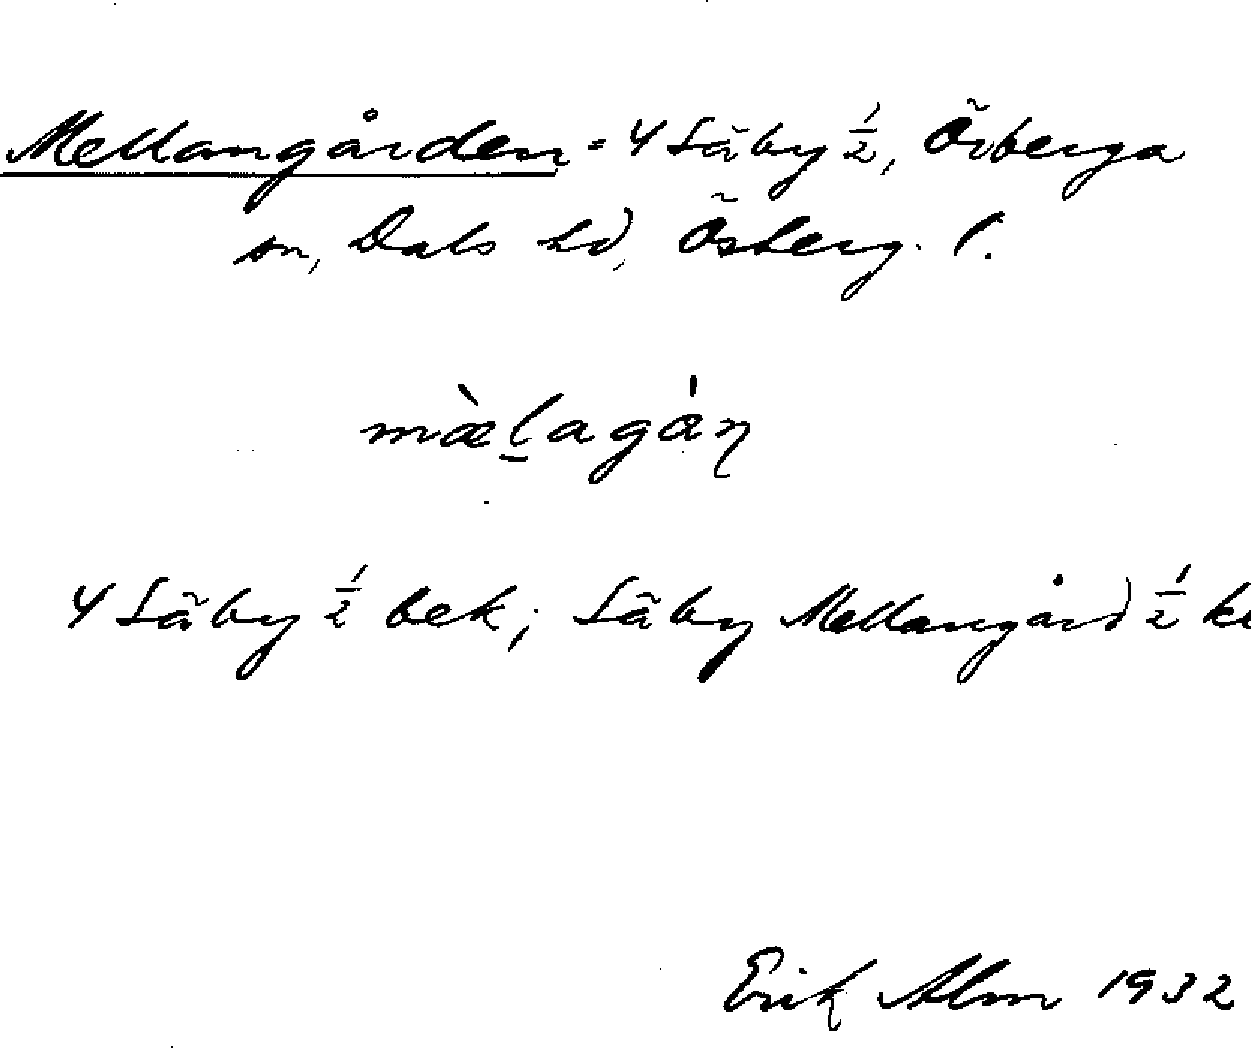 Mellangården = 4 Säby 1/2, Örberga
sn, Dals hd, Österg. l.
mæ̀l̠agán
4 Säby 1/2 bek; Säby Mellangård 1/2
Erik Alm 1932